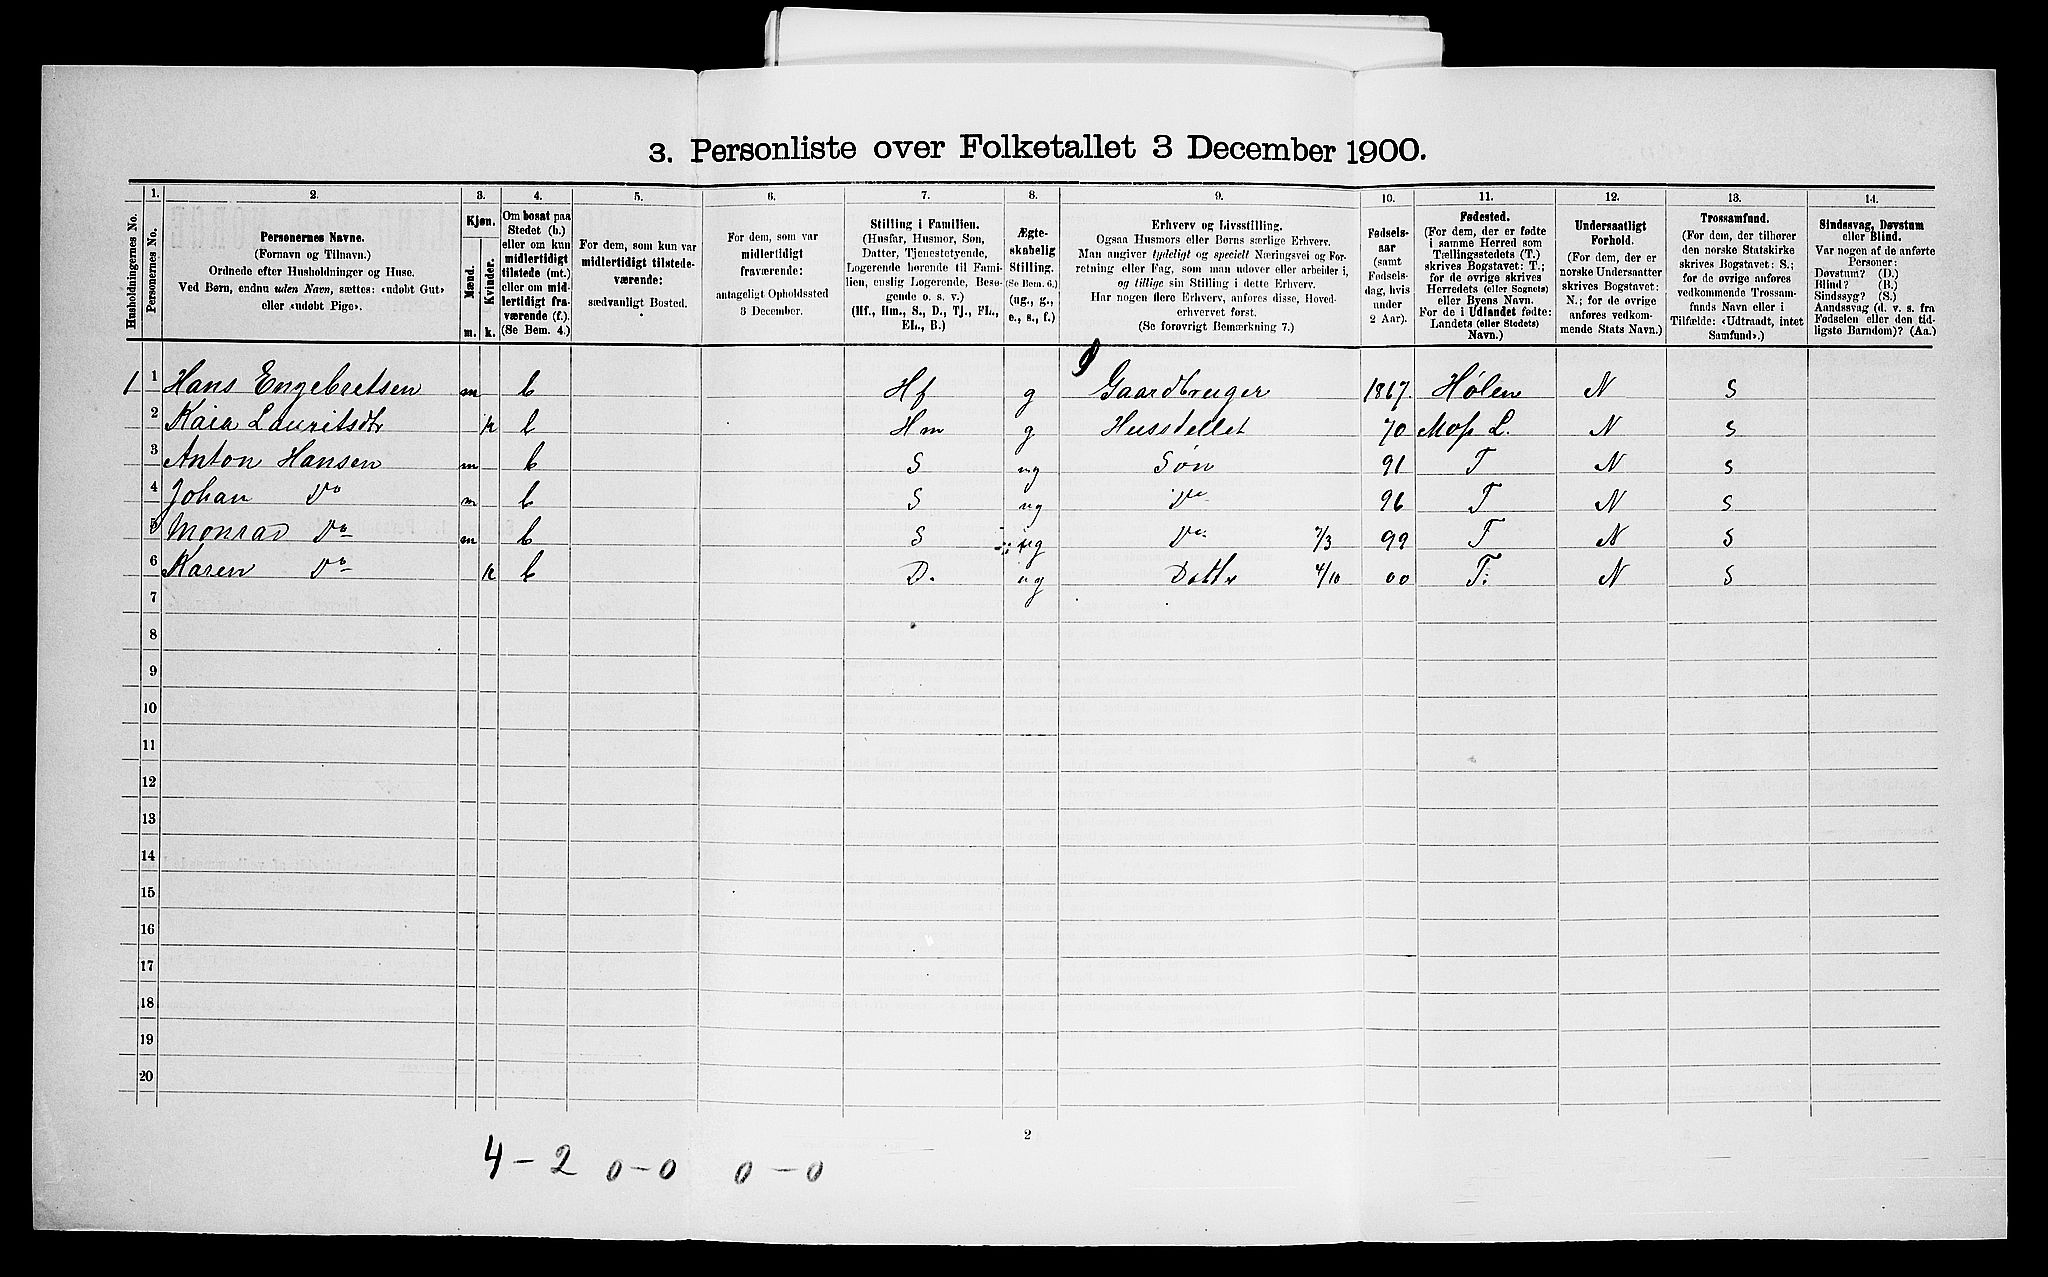 3. Personliste over Folketallet 3 December 1900.
Husholdningernes No.
1.
Personernes No.
2.
Personernes Navne.
(Fornavn og Tilnavn.)
Ordnede efter Husholdninger og Huse.
Ved Børn, endnu uden Navn, sættes: «udøbt Gut»
eller «udøbt Pige».
3.
Kjøn.
Mænd.
Kvinder.
m. k.
4.
Om bosat paa
Stedet (b.)
eller om kun
midlertidigt
tilstede (mt.)
eller om mid-
lertidigt fra-
værende (f.).
(Se Bem. 4.)
5.
For dem, som kun var
midlertidigt tilstede-
værende:
sædvanligt Bosted.
6.
For dem, som var
midlertidigt
fraværende:
antageligt Opholdssted
3 December.
7.
Stilling i Familien.
(Husfar, Husmor, Søn,
Datter, Tjenestetyende,
Logerende hørende til Fami-
lien, enslig Logerende, Besø-
gende o. s. v.)
(Hf., Hm., S., D., Tj., FL.,
EL., B.)
8.
Ægte-
skabelig
Stilling.
(Se Bem. 6.)
(ug., g.,
e., s., f.)
9.
Erhverv og Livsstilling.
Ogsaa Husmors eller Børns særlige Erhverv.
Man angiver tydeligt og specielt Næringsvei og For-
retning eller Fag, som man udover eller arbeider i,
og tillige sin Stilling i dette Erhverv.
Har nogen flere Erhverv, anføres disse, Hoved-
erhvervet først.
(Se forøvrigt Bemærkning 7.)
10.
Fødsels-
aar
(samt
Fødsels-
dag, hvis
under
2 Aar).
11.
Fødested.
(For dem, der er fødte
i samme Herred som
Tællingsstedets (T.)
skrives Bogstavet: T.;
for de øvrige skrives
Herredets (eller Sognets)
eller Byens Navn.
For de i Udlandet fødte:
Landets (eller Stedets)
Navn.)
12.
Undersaatligt
Forhold.
(For dem, der er
norske Undersaatter
skrives Bogstavet:
N.; for de øvrige
anføres vedkom-
mende Stats Navn.)
13.
Trossamfund.
(For dem, der tilhører
den norske Statskirke
skrives Bogstavet: S.;
for de øvrige anføres
vedkommende Trossam-
funds Navn eller i
Tilfælde: «Udtraadt, intet
Samfund».)
14.
Sindssvag, Døvstum
eller Blind.
Var nogen af de anførte
Personer:
Døvstum? (D.)
Blind? (B.)
Sindssyg? (S.)
Aandssvag (d. v. s. fra
Fødselen eller den tid-
ligste Barndom)? (Aa.)
1 1 Hans Engebretsen m b Hf g Gaardbruger 1867. Hølen N S
2 Kaia Lauritsdtr k b Hm g Husstellet 70 Moss L. N S
3 Anton Hansen m b S ug Søn 91 T N S
4 Johan Do m b S ug Do 96 T N S
5 Monrad Do m b S ug Do 7/3 99 T N S
6 Karen Do k b D. ug Datter 4/10 00 T. N S
7
8
9
10
11
12
13
14
15
16
17
18
19
20
2
4 – 2 0 – 0 0 – 0